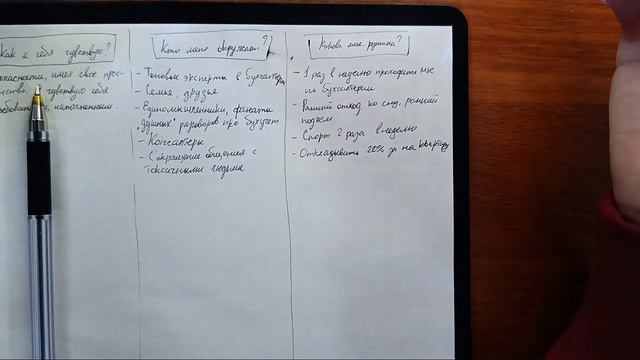 Как я себя чувствую?
опасности, имея свое прос-
нство, чувствую себя
наполненным.
Кто меня окружает?
- Топовые эксперты в бухгалтерии
- Семья, друзья
- Единомышленники, фанаты
"душных" разговоров про бухучет
- Консалтеры
- Сокращение общения с
токсичными людьми
Какова моя рутина?
- 1 раз в неделю проходить МК
по бухгалтерии
- Ранний отход ко сну, ранний
подъем
- Спорт 2 раза в неделю
- Откладывать 20% зп на квартиру